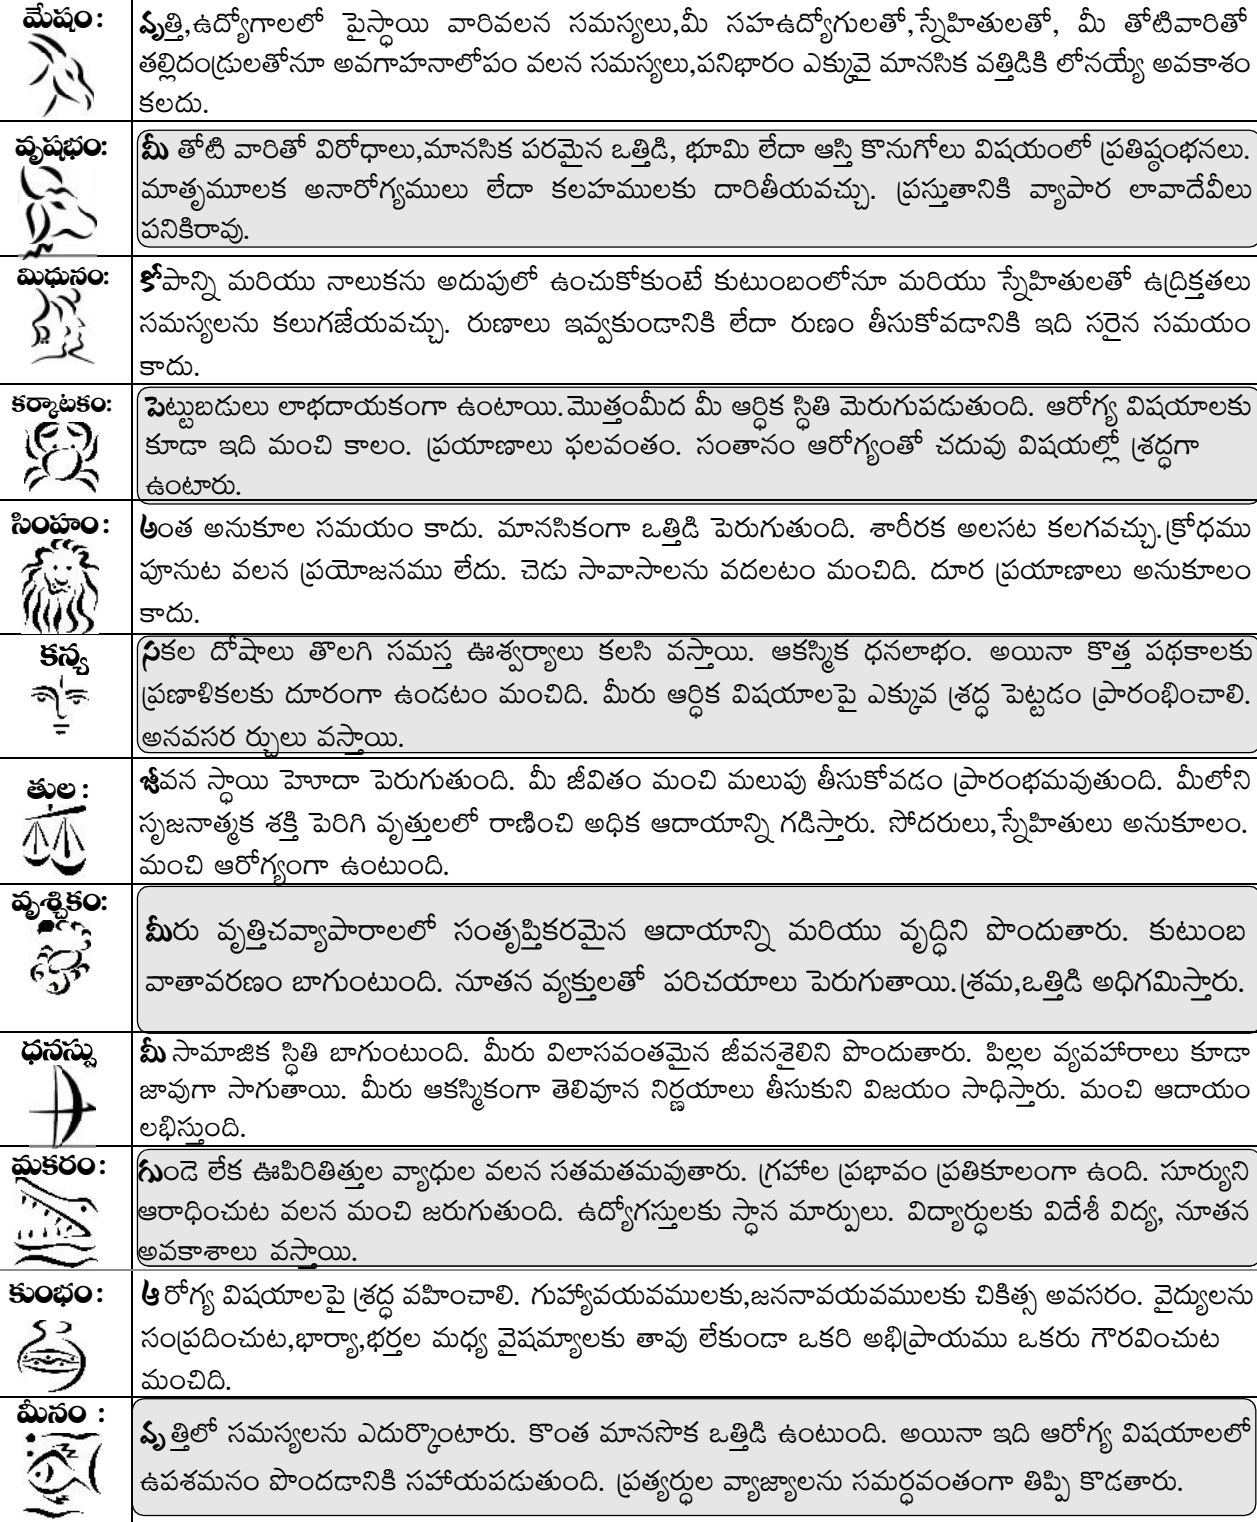 మేషం:
వృత్తి,ఉద్యోగాలలో పైస్థాయి వారివలన సమస్యలు,మీ సహఉద్యోగులతో,స్నేహితులతో, మీ తోటివారితో
తల్లిదండ్రులతోనూ అవగాహనాలోపం వలన సమస్యలు,పనిభారం ఎక్కువై మానసిక వత్తిడికి లోనయ్యే అవకాశం
కలదు.
వృషభం:
మీ తోటి వారితో విరోధాలు,మానసిక పరమైన ఒత్తిడి, భూమి లేదా ఆస్తి కొనుగోలు విషయంలో ప్రతిష్ఠంభనలు.
మాతృమూలక అనారోగ్యములు లేదా కలహములకు దారితీయవచ్చు. ప్రస్తుతానికి వ్యాపార లావాదేవీలు
పనికిరావు.
మిధునం:
కోపాన్ని మరియు నాలుకను అదుపులో ఉంచుకోకుంటే కుటుంబంలోనూ మరియు స్నేహితులతో ఉద్రిక్తతలు
సమస్యలను కలుగజేయవచ్చు. రుణాలు ఇవ్వకుండానికి లేదా రుణం తీసుకోవడానికి ఇది సరైన సమయం
కాదు.
కర్కాటకం:
పెట్టుబడులు లాభదాయకంగా ఉంటాయి.మొత్తంమీద మీ ఆర్ధిక స్థితి మెరుగుపడుతుంది. ఆరోగ్య విషయాలకు
కూడా ఇది మంచి కాలం. ప్రయాణాలు ఫలవంతం. సంతానం ఆరోగ్యంతో చదువు విషయల్లో శ్రద్ధగా
ఉంటారు.
సింహం:
అంత అనుకూల సమయం కాదు. మానసికంగా ఒత్తిడి పెరుగుతుంది. శారీరక అలసట కలగవచ్చు.క్రోధము
పూనుట వలన ప్రయోజనము లేదు. చెడు సావాసాలను వదలటం మంచిది. దూర ప్రయాణాలు అనుకూలం
కాదు.
కన్య
సకల దోషాలు తొలగి సమస్త ఊశ్వర్యాలు కలసి వస్తాయి. ఆకస్మిక ధనలాభం. అయినా కొత్త పథకాలకు
ప్రణాళికలకు దూరంగా ఉండటం మంచిది. మీరు ఆర్ధిక విషయాలపై ఎక్కువ శ్రద్ధ పెట్టడం ప్రారంభించాలి.
అనవసర ర్చులు వస్తాయి.
తుల:
జీవన స్థాయి హెూదా పెరుగుతుంది. మీ జీవితం మంచి మలుపు తీసుకోవడం ప్రారంభమవుతుంది. మీలోని
సృజనాత్మక శక్తి పెరిగి వృత్తులలో రాణించి అధిక ఆదాయాన్ని గడిస్తారు. సోదరులు,స్నేహితులు అనుకూలం.
మంచి ఆరోగ్యంగా ఉంటుంది.
వృశ్చికం:
మీరు వృత్తిచవ్యాపారాలలో సంతృప్తికరమైన ఆదాయాన్ని మరియు వృద్ధిని పొందుతారు. కుటుంబ
వాతావరణం బాగుంటుంది. నూతన వ్యక్తులతో పరిచయాలు పెరుగుతాయి.శ్రమ,ఒత్తిడి అధిగమిస్తారు.
ధనస్సు
మీ సామాజిక స్థితి బాగుంటుంది. మీరు విలాసవంతమైన జీవనశైలిని పొందుతారు. పిల్లల వ్యవహారాలు కూడా
జావుగా సాగుతాయి. మీరు ఆకస్మికంగా తెలివూన నిర్ణయాలు తీసుకుని విజయం సాధిస్తారు. మంచి ఆదాయం
లభిస్తుంది.
మకరం:
గుండె లేక ఊపిరితిత్తుల వ్యాధుల వలన సతమతమవుతారు. గ్రహాల ప్రభావం ప్రతికూలంగా ఉంది. సూర్యుని
ఆరాధించుట వలన మంచి జరుగుతుంది. ఉద్యోగస్తులకు స్థాన మార్పులు. విద్యార్ధులకు విదేశీ విద్య, నూతన
అవకాశాలు వస్తాయి.
కుంభం:
ఆరోగ్య విషయాలపై శ్రద్ధ వహించాలి. గుహ్యావయవములకు,జననావయవములకు చికిత్స అవసరం. వైద్యులను
సంప్రదించుట,భార్యా,భర్తల మధ్య వైషమ్యాలకు తావు లేకుండా ఒకరి అభిప్రాయము ఒకరు గౌరవించుట
మంచిది.
మీనం :
వృత్తిలో సమస్యలను ఎదుర్కొంటారు. కొంత మానసొక ఒత్తిడి ఉంటుంది. అయినా ఇది ఆరోగ్య విషయాలలో
ఉపశమనం పొందడానికి సహాయపడుతుంది. ప్రత్యర్ధుల వ్యాజ్యాలను సమర్ధవంతంగా తిప్పి కొడతారు.